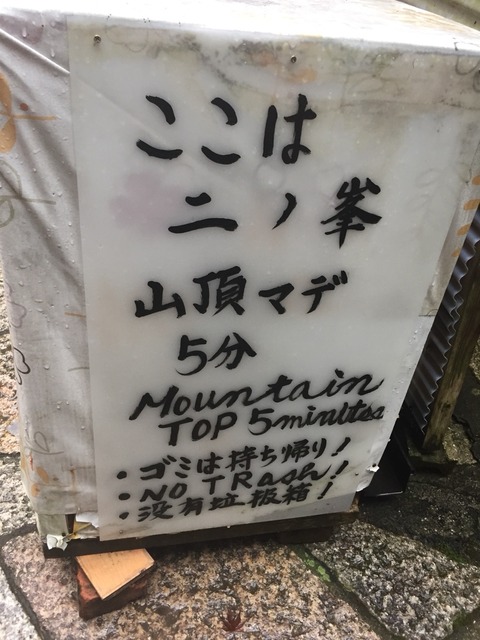 ここは
二ノ峯
山頂マデ
5分
Mountain
TOP 5minutes
・ゴミは持ち帰り!
・NO TRash!
・没有垃圾箱!